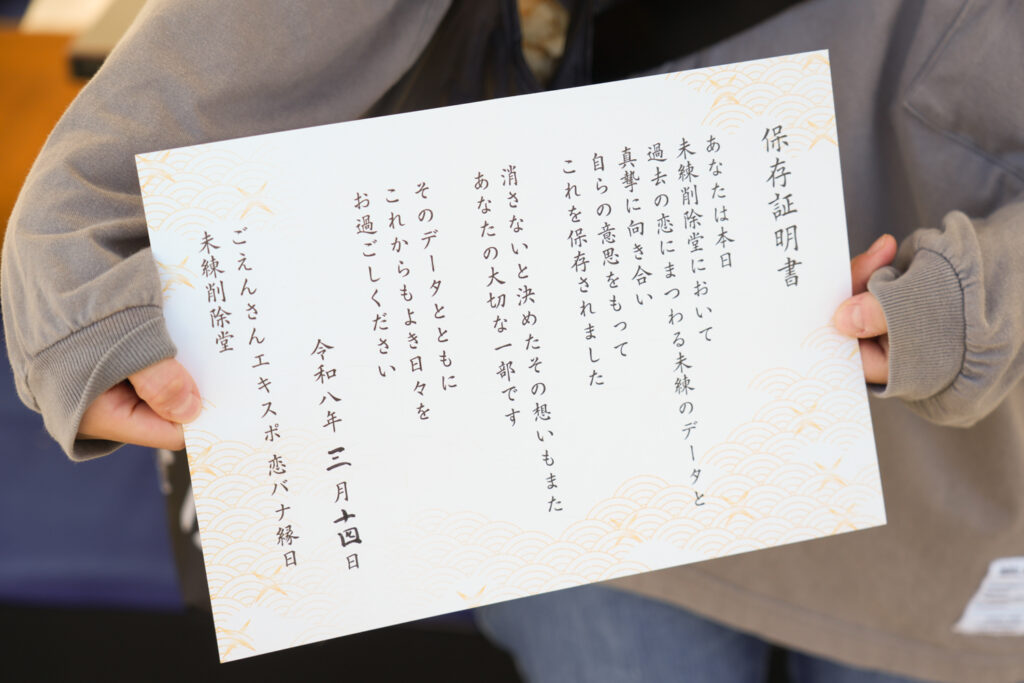 保存証明書
あなたは本日
未練削除堂において
過去の恋にまつわる未練のデータと
真摯に向き合い
自らの意思をもって
これを保存されました
消さないと決めたその想いもまた
あなたの大切な一部です
そのデータとともに
これからもよき日々を
お過ごしください
令和八年 三月十四日
ごえんさんエキスポ 恋バナ縁日
未練削除堂